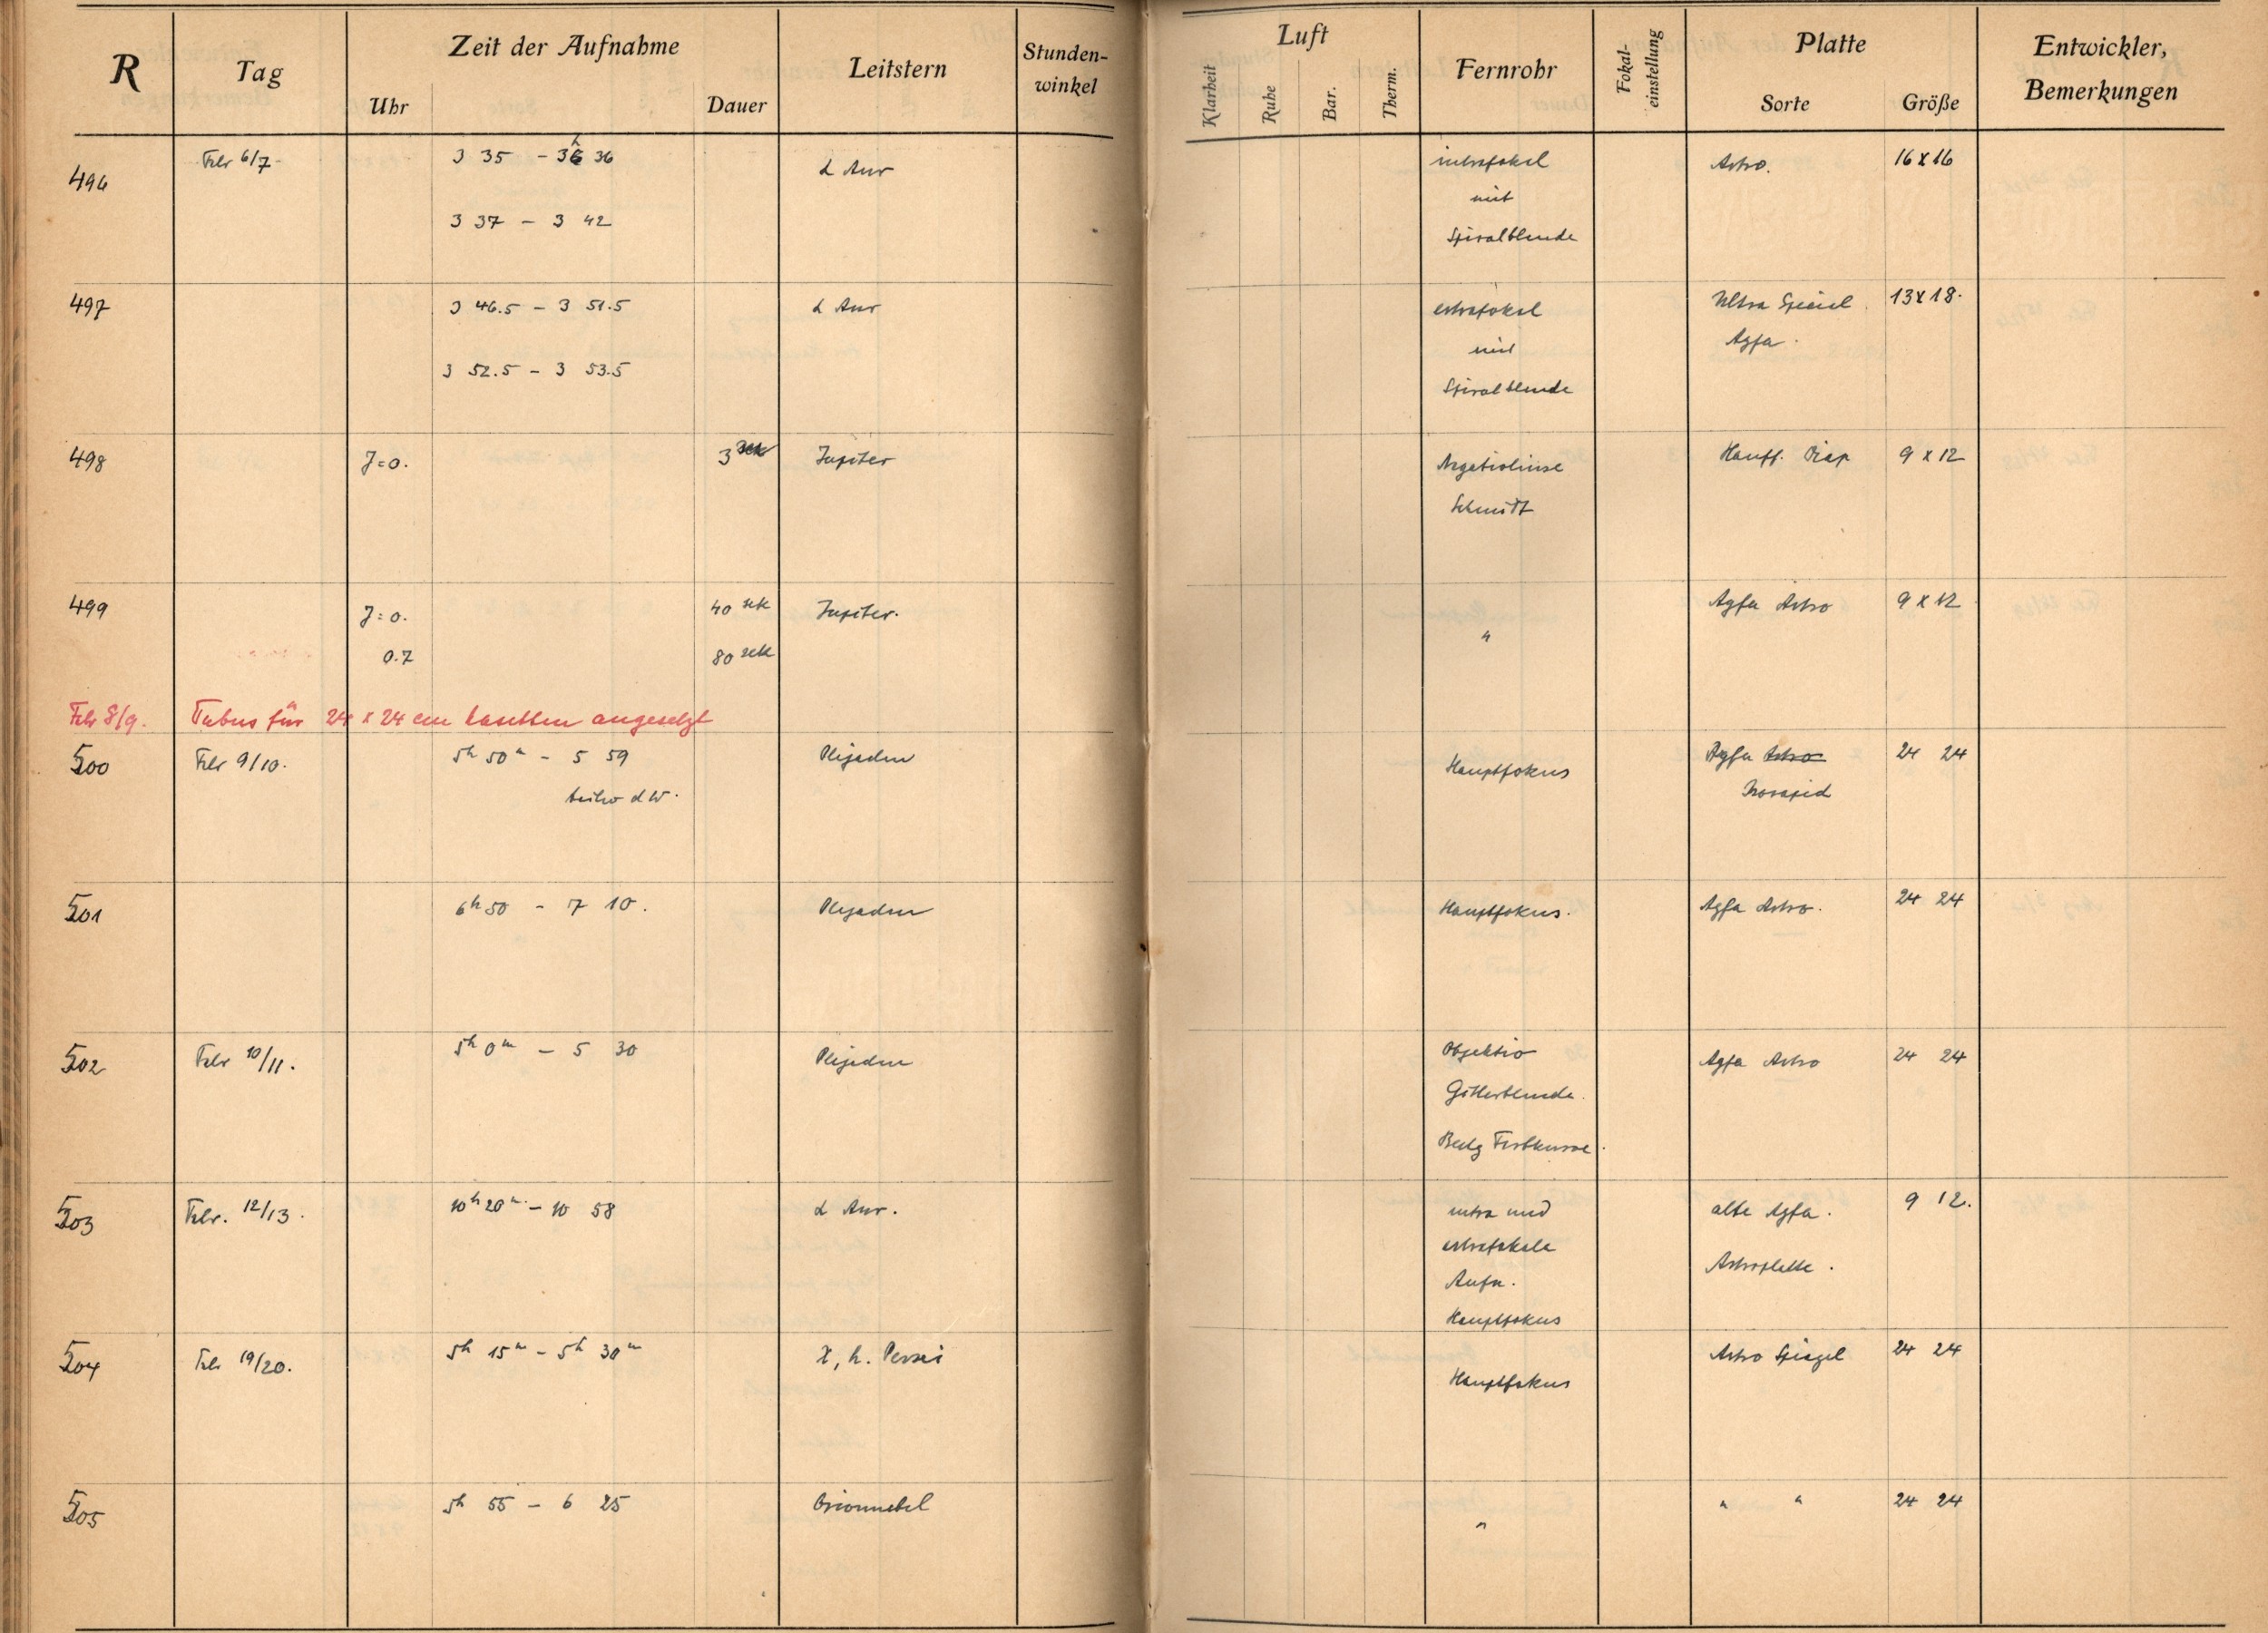 R Tag Zeit der Aufnahme Leitstern Stunden-winkel Luft Fernrohr Fokal-einstellung Platte Entwickler, Bemerkungen
Uhr Dauer Klarheit Ruhe Bar. Therm. Sorte Größe
496 Febr 6/7 3 35 - 3h 36 α Aur intrafokal Astro. 16 x 16
mit
3 37 - 3 42 Spiralblende
497 3 46.5 - 3 51.5 α Aur extrafokal Ultra Special 13 x 18.
mit Agfa.
3 52.5 - 3 53.5 Spiralblende
498 J=0. 3 sek Jupiter Negativlinse Hauff. Diap 9 x 12
Schmidt
499 J=0. 40 sek Jupiter. " Agfa Astro 9 x 12
0.7 80 sek
Febr 8/9. Tubus für 24 x 24 cm Kasetten angesetzt
500 Febr 9/10. 5h 50m - 5 59 Plejaden Hauptfokus Agfa Astro 24 24
d W.
501 6h 50 - 7 10. Plejaden Hauptfokus. Agfa Astro. 24 24
502 Febr 10/11. 5h 0m - 5 30 Plejaden Objektiv Agfa Astro 24 24
Gitterblende.
503 Febr. 12/13. 10h 20m - 10 58 α Aur. intra und alte Agfa. 9 12.
extrafokale Astroplatte.
Aufn.
Hauptfokus
504 Febr 19/20. 5h 15m - 5h 30m χ, h. Persei Hauptfokus Astro Spiegel 24 24
505 5h 55 - 6 25 Orionnebel " " " 24 24